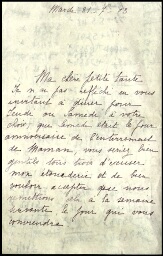 Mardi 21
Ma chère petite tante
Je n'ai pas réfléchi en vous
invitant à dîner pour
Jeudi ou Samedi à votre
choix, que Samedi était le jour
anniversaire de l'enterrement
de Maman, vous seriez bien
gentils tous trois d'excuser
mon étourderie et de bien
vouloir accepter que nous
remettions cela à la semaine
suivante le jour que vous
conviendra